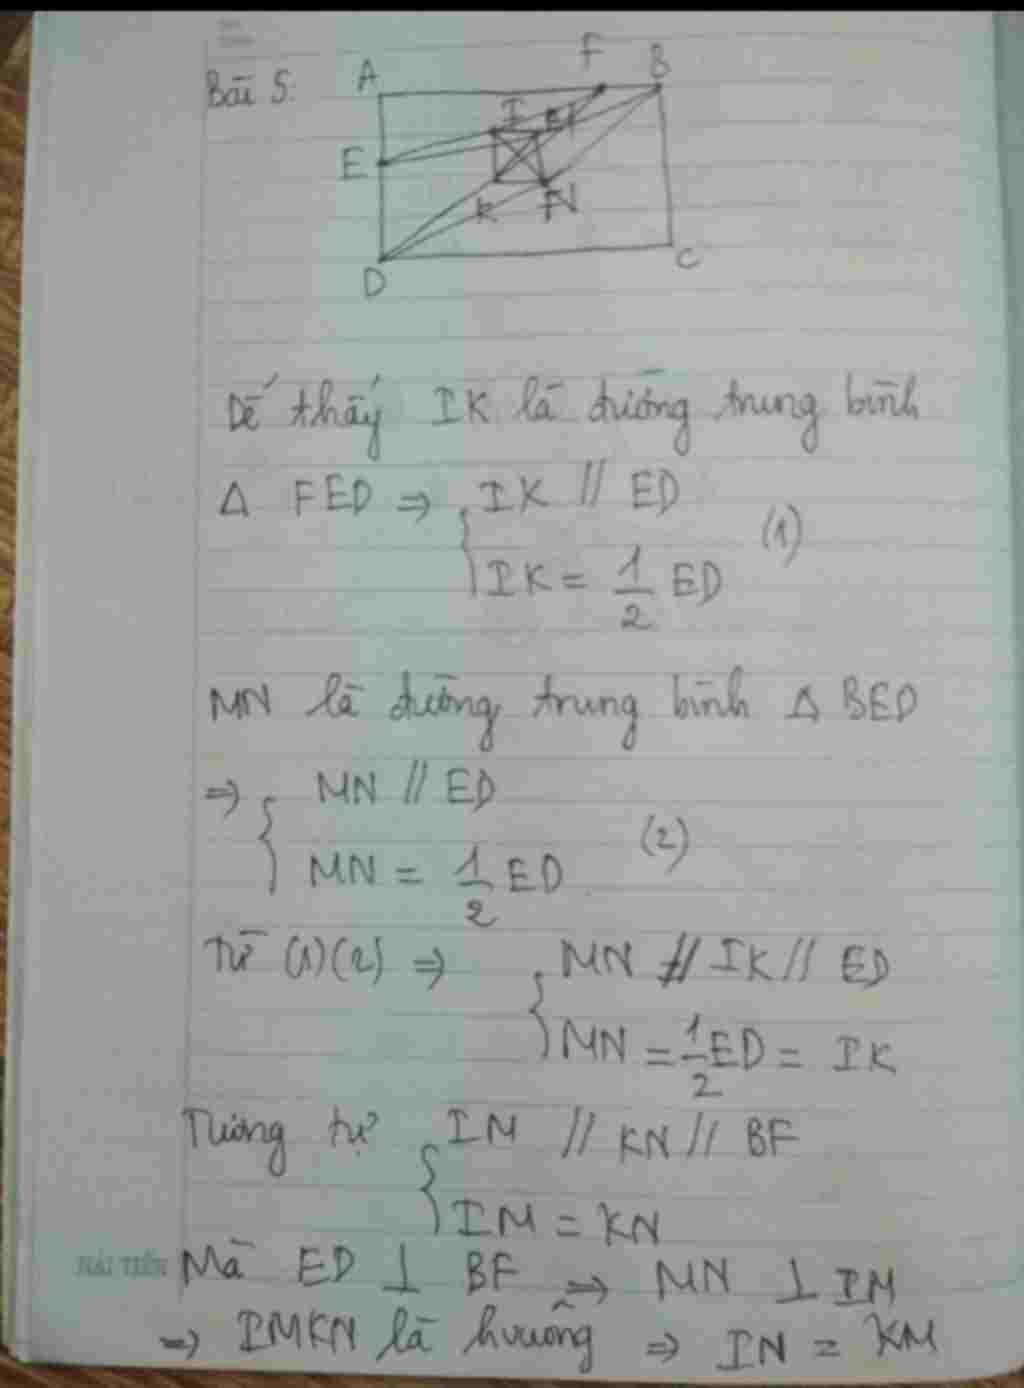 Bài 5:
A
F
B
I
M
E
K
N
D
C
Dế thấy IK là đường trung bình
Δ FED ⇒ { IK // ED
IK = 1/2 ED (1)
MN là đường trung bình Δ BED
⇒ { MN // ED
MN = 1/2 ED (2)
Từ (1)(2) ⇒ { MN // IK // ED
MN = 1/2 ED = IK
Tương tự { IM // KN // BF
IM = KN
HẢI TIẾN
Mà ED ⊥ BF ⇒ MN ⊥ IM
⇒ IMKN là hvuông ⇒ IN = KM